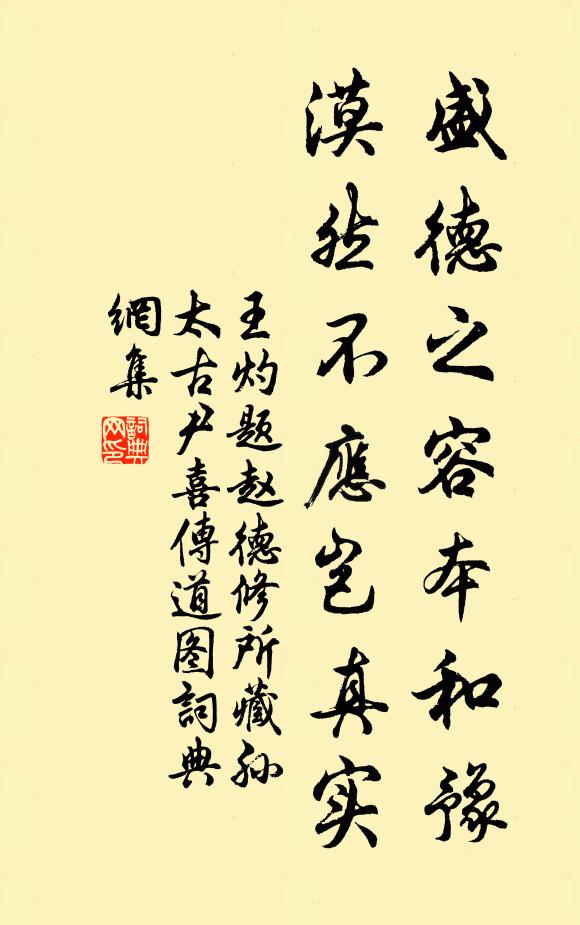 盛德之容本和豫
漠然不應岂真实
王灼题赵德修所藏孙
太古尹喜傳道图詞典
網集
詞典
网印